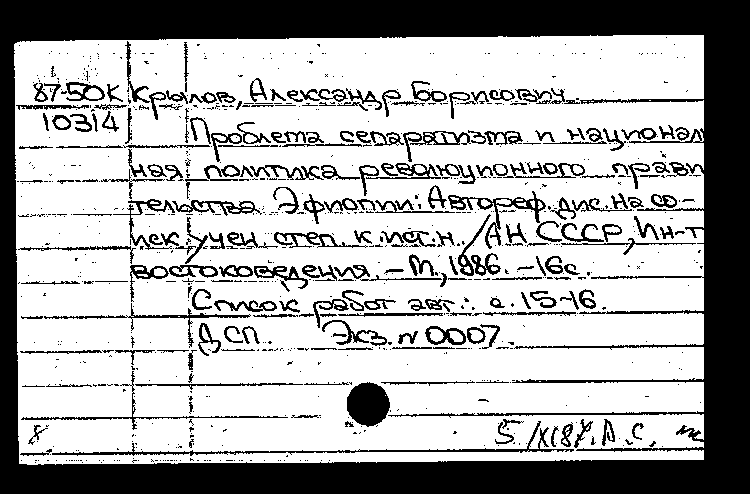 87-50К Крылов, Александр Борисович.
10314 Проблема сепаратизма и национал
ная политика революционного прави
тельства Эфиопии: Автореф. дис. на со-
иск. учен. степ. к.ист.н. / АН СССР, Ин-т
востоковедения. – М., 1986. – 16с.
Список работ авт.: с. 15-16.
ДСП. Экз. N 0007.
8 5/XI87. А.С.